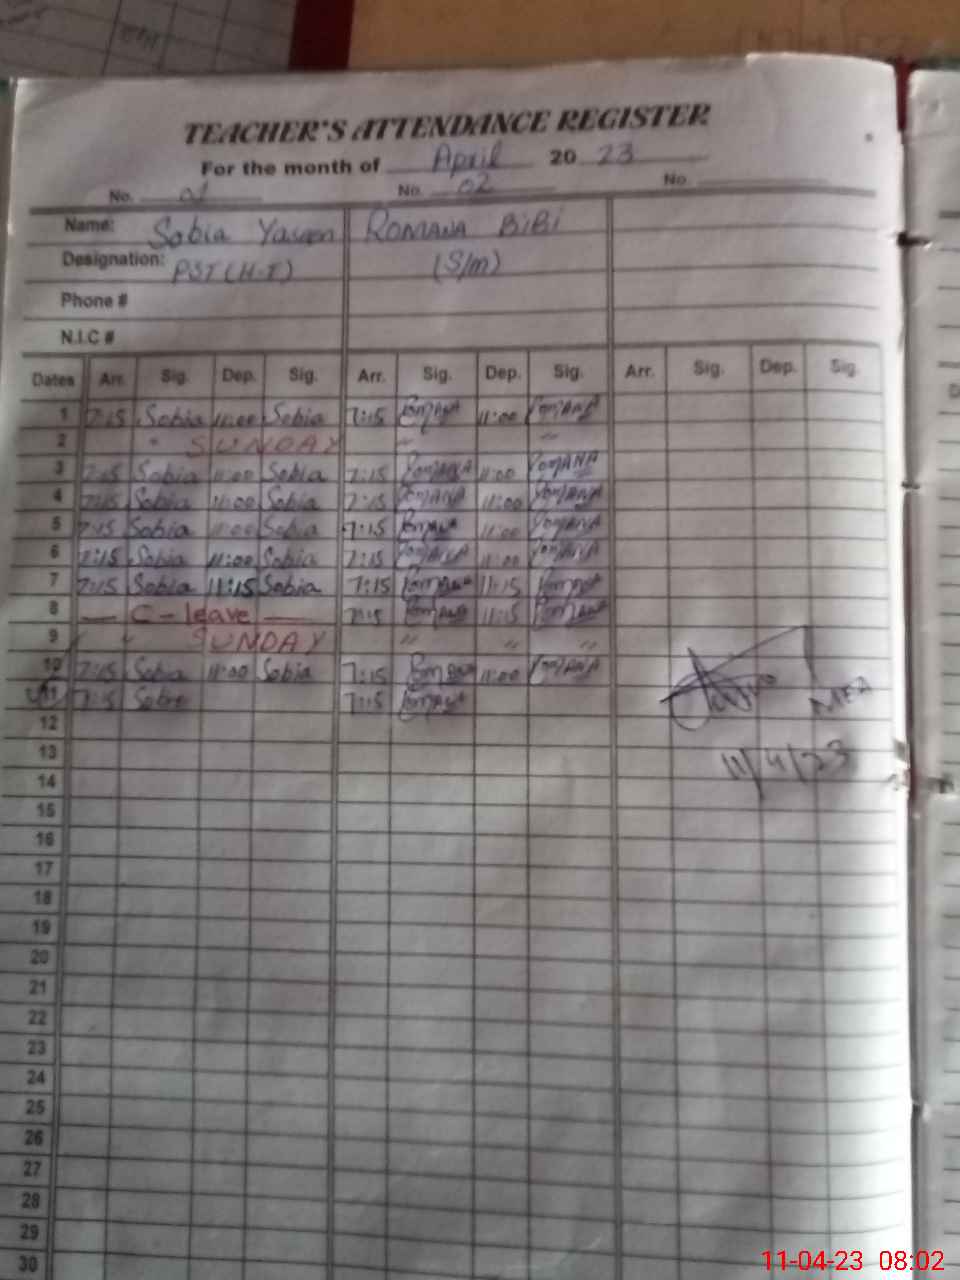 TEACHER'S ATTENDANCE REGISTER
For the month of April 20 23
No. 01 No. 02 No.
Name: Sobia Yaseen ROMANA BiBi
Designation: PST (H-T) (S/m)
Phone #
N.I.C #
Dates Arr. Sig. Dep. Sig. Arr. Sig. Dep. Sig. Arr. Sig. Dep. Sig.
1 7:15 Sobia 11:00 Sobia 7:15 RomANA 11:00 RomANA
2 " SUNDAY " "
3 7:15 Sobia 11:00 Sobia 7:15 RomANA 11:00 RomANA
4 7:15 Sobia 11:00 Sobia 7:15 RomANA 11:00 RomANA
5 7:15 Sobia 11:00 Sobia 7:15 RomANA 11:00 RomANA
6 7:15 Sobia 11:00 Sobia 7:15 RomANA 11:00 RomANA
7 7:15 Sobia 11:15 Sobia 7:15 RomANA 11:15 RomANA
8 — C - leave — 7:15 RomANA 11:15 RomANA
9 " " SUNDAY " " "
10 7:15 Sobia 11:00 Sobia 7:15 RomANA 11:00 RomANA
11 7:15 Sobia 7:15 RomANA
MEA
12
11/4/23
13
14
15
16
17
18
19
20
21
22
23
24
25
26
27
28
29
30
11-04-23 08:02